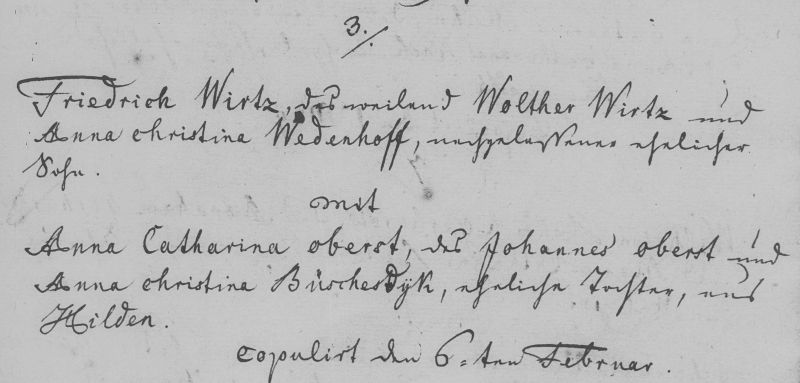 3./.
Friedrich Wirtz, des weilend Wolther Wirtz und
Anna christina Wedenhoff, nachgelassener ehelicher
Sohn.
mit
Anna Catharina oberst, des Johannes oberst und
Anna christina Büschesdyk, eheliche Tochter, aus
Hilden.
Copulirt den 6=ten Februar.